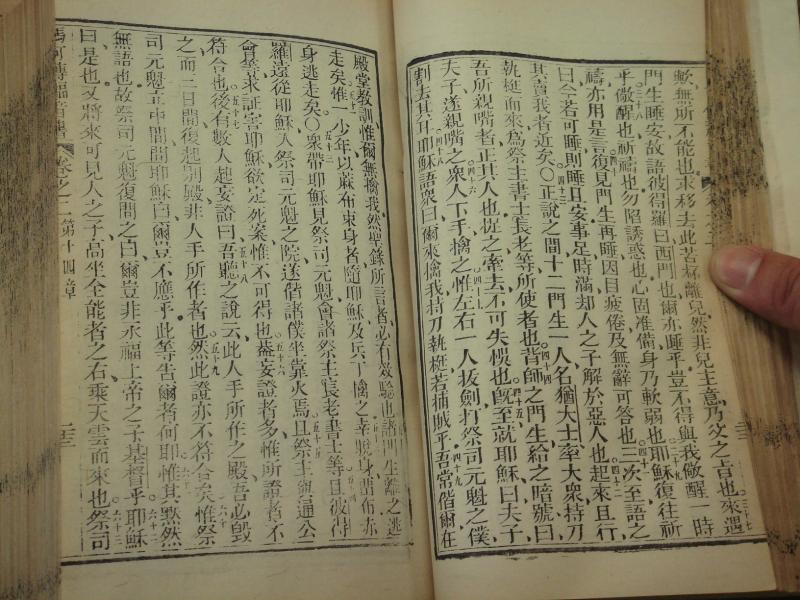 歟無所不能也求移去此苦杯離兒然非兒主意乃父之旨也來遇
門生睡妄故語彼得羅曰西門也爾亦睡乎豈不得與我儆醒一時
乎儆醒也祈禱也勿陷誘惑也心固准備身乃軟弱也耶穌復往祈
禱亦用是言復見門生再睡因目疲倦及無辭可答也三次至語之
曰今若可睡則睡且安事足時滿却人之子解於惡人也起來且行
其賣我者近矣〇正說之間十二門生一人名猶大士率大衆持刀
執梃而來爲祭主書士長老等所使者也背師之門生給之暗號曰
吾所親嘴者正其人也捉之牽去不可失悞也旣至就耶穌曰夫子
夫子遂親嘴之衆人下手擒之惟左右一人拔劍打祭司元魁之僕
割去其耳耶穌語衆曰爾來擒我持刀執梃若捕賊乎吾常偕爾在
殿堂教訓惟爾無擒我然聖錄所言者必有效驗也諸門生離之逃
走矣惟一少年以蔴布束身者隨耶穌及兵丁擒之幸脫身留布赤
身逃走矣〇衆帶耶穌見祭司元魁會諸祭主長老書士等且彼得
羅遠從耶穌入祭司元魁之院遂偕諸僕坐靠火焉且祭主與通公
會皆求証害耶穌欲定死案惟不可得也葢妄證者多惟所證者不
符合也後有數人起妄證曰吾聽之說云此人手所作之殿吾必毀
之而三日間復起別殿非人手所作者也然此證亦不符合矣惟祭
司元魁立中間問耶穌曰爾豈不應乎此等告爾者何耶惟其黙然
無語也故祭司元魁復問之曰爾豈非永福上帝之子基督乎耶穌
曰是也又將來可見人之子高坐全能者之右乘天雲而來也祭司
馬可傳福音書 卷之二 第十四章 二三